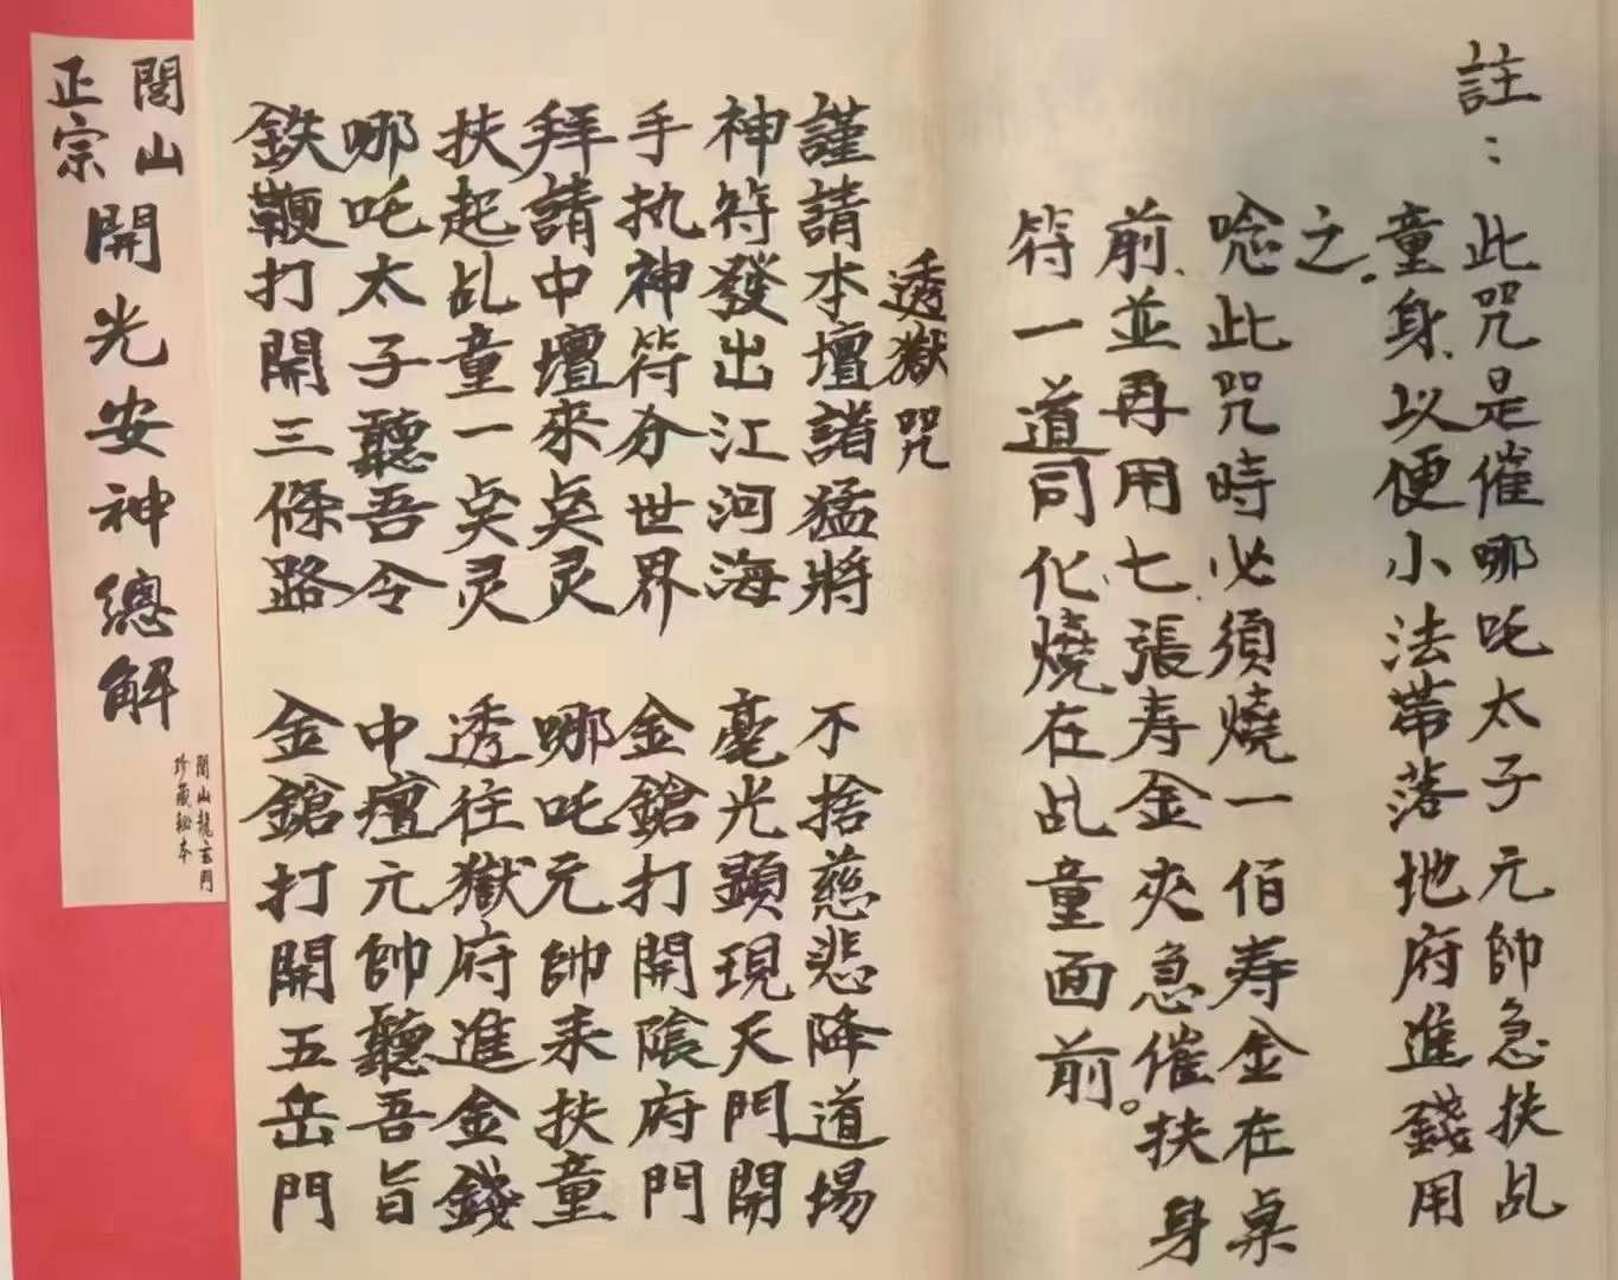 註：此咒是催哪吒太子元帥急扶乩
童身、以便小法帶落地府進錢用
之。
唸此咒時必須燒一佰寿金在桌
前、並再用七張寿金夾急催扶身
符一道同化燒在乩童面前。
透獄咒
謹請本壇諸猛將 不捨慈悲降道場
神符發出江河海 毫光顕現天門開
手执神符分世界 金鎗打開陰府門
拜請中壇來奌灵 哪吒元帥来扶童
扶起乩童一奌灵 透往獄府進金錢
哪吒太子聽吾令 中壇元帥聽吾旨
鉄鞭打開三條路 金鎗打開五岳門
閭山
正宗
開光安神總解
閭山龍玄門
珍藏秘本